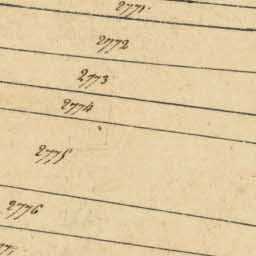 2771.
2772
2773
2774
2775
2776